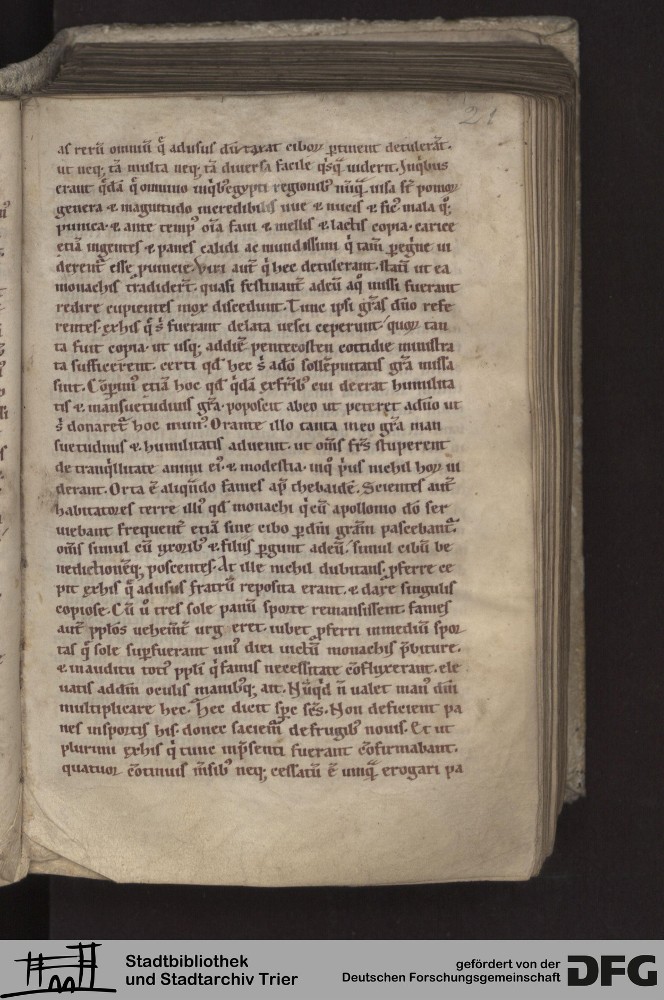 21
as rerū omniū q̄ adusus dūtaxat ciboꝝ ꝑtinent detulerāt.
ut neq; tā multa neq; tā diuersa facile q̇sq̄ uiderit. Inq̇bus
erant q̄dā q̄ omnino inq̇bꝰ egypti regionibꝰ nūq̄ uisa st̄ pomoꝝ
genera & magnitudo incredibilis uue & nuces & ficꝰ mala q;
punica. & ante tempꝰ oīa faui & mellis & lactis copia. carice
etiā ingentes & panes calidi ac mundissimi q̇ tam̄ ꝑegⁱne ui
derent᷑ esse ꝓuincie. Viri aut̄ q̇ hec detulerant. statī ut ea
monachis tradider̄t. quasi festinant̄ adeū aq̇ missi fuerant
redire cupientes mox discedunt. Tunc ipsi grās dn̄o refe
rentes. exhis q̄ s̄ fuerant delata uesci ceperunt. quoꝝ tan
ta fuit copia. ut usq; addiē pentecosten cottidie ministra
ta sufficerent. certi qd̄ hec s̄ adōo sollēpnitatis grā missa
sint. Cōꝑimꝰ etiā hoc qd̄ q̄dā exfrībꝰ cui deerat humilita
tis & mansuetudinis grā. poposcit abeo ut peteret adn̄o ut
s̄ donaret᷑ hoc munꝰ. Orante illo tanta ineo grā man
suetudinis & humilitatis aduenit. ut om̄s frēs stuperent
de tranq̇llitate animi eiꝰ & modestia. inq̇ pⁱus nichil hoꝝ ui
derant. Orta ē aliqn̄do fames ap̄ thebaidē. Scientes aut̄
habitatores terre illiꝰ qd̄ monachi q̇ cū apollonio dō ser
uiebant frequent̄ etiā sine cibo ꝑdn̄i grām pascebant᷑.
om̄s simul cū uxoribꝰ & filiis ꝑgunt adeū. simul cibū be
nedictionēq; poscentes. At ille nichil dubitans. ꝓferre ce
pit exhis q̄ adusus fratrū reposita erant. & dare singulis
copiose. Cū ū tres sole panū sporte remansissent. fames
aut̄ pplōs uehem̄t᷑ urgeret. iubet ꝓferri inmediū spor
tas q̄ sole suꝑfuerant uniꝰ diei uictū monachis p̄biture.
& inauditu totiꝰ ppl̄i q̇ famis necessitate cōfluxerant. ele
uatis addm̄ oculis manibꝰq; ait. Nūq̇d n̄ ualet manꝰ dn̄i
multiplicare hec. Hec dicit sp̄c sēs. Non deficient pa
nes insportis his. donec saciem᷑ defrugibꝰ nouis. Et ut
plurimi exhis q̇ tunc inp̄senti fuerant cōfirmabant.
quatuor cōtinuis m̄sibꝰ neq; cessatū ē uniq̄ erogari pa
Stadtbibliothek
und Stadtarchiv Trier
gefördert von der
Deutschen Forschungsgemeinschaft
DFG